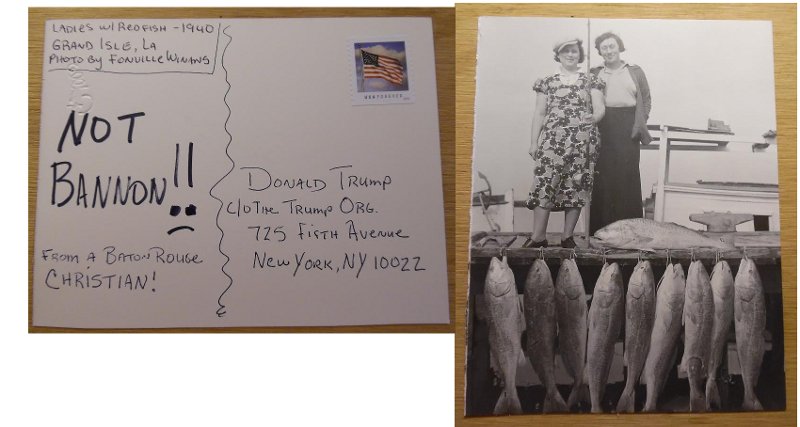 LADIES W/ REDFISH - 1940
GRAND ISLE, LA
PHOTO BY FONVILLE WINANS
NOT
BANNON!!
FROM A BATON ROUGE
CHRISTIAN!
DONALD TRUMP
C/O THE TRUMP ORG.
725 FIFTH AVENUE
NEW YORK, NY 10022